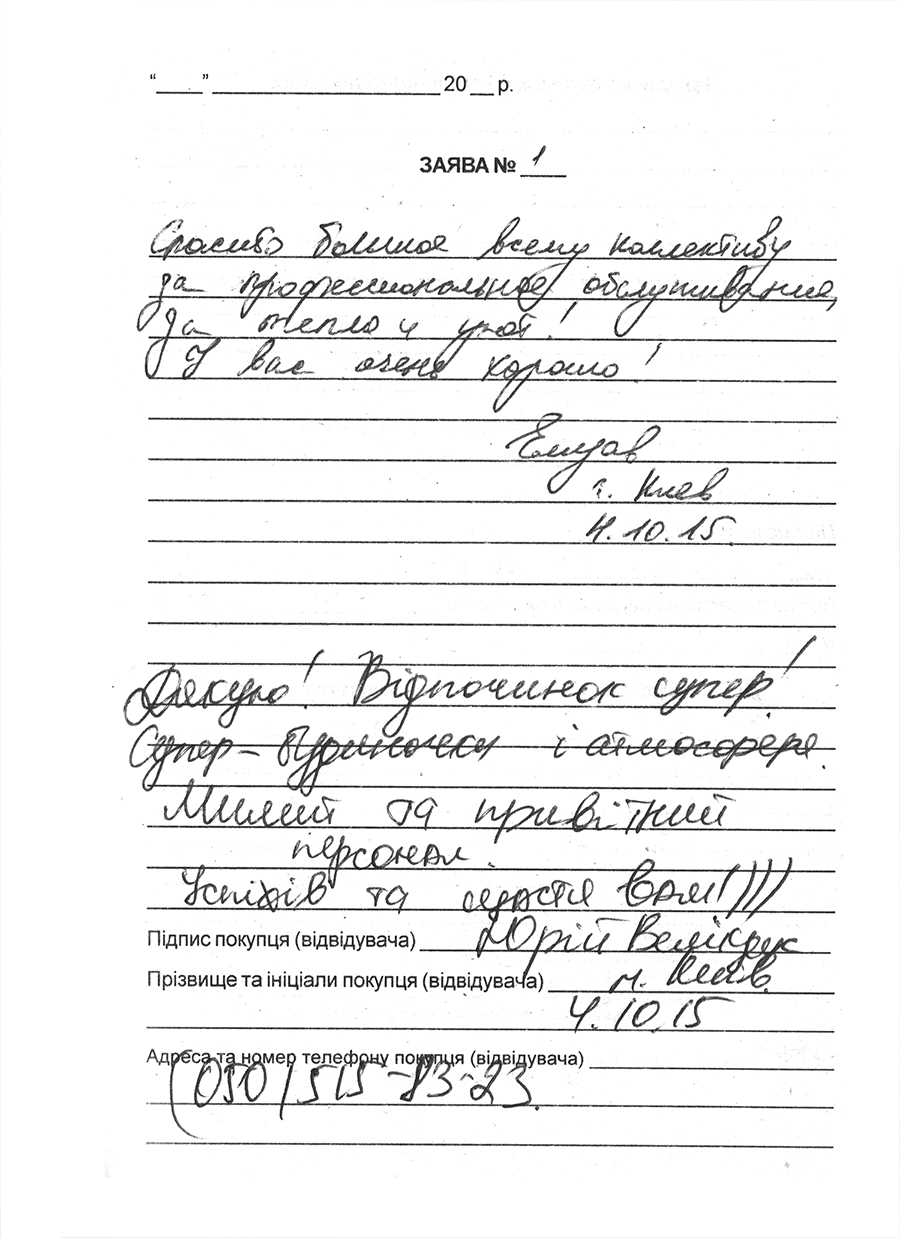 “____” ____________________ 20 __ р.
ЗАЯВА № 1
Спасибо большое всему коллективу
за профессиональное обслуживание,
за тепло и уют!
У вас очень хорошо!
г. Киев
4.10.15.
Дякую! Відпочинок супер!
Супер - будиночки і атмосфера.
Милий та привітний
персонал.
Успіхів та щастя Вам!)))
Підпис покупця (відвідувача) Юрій
Прізвище та ініціали покупця (відвідувача) м. Київ.
4.10.15
Адреса та номер телефону покупця (відвідувача)
(050) 515-83-23.